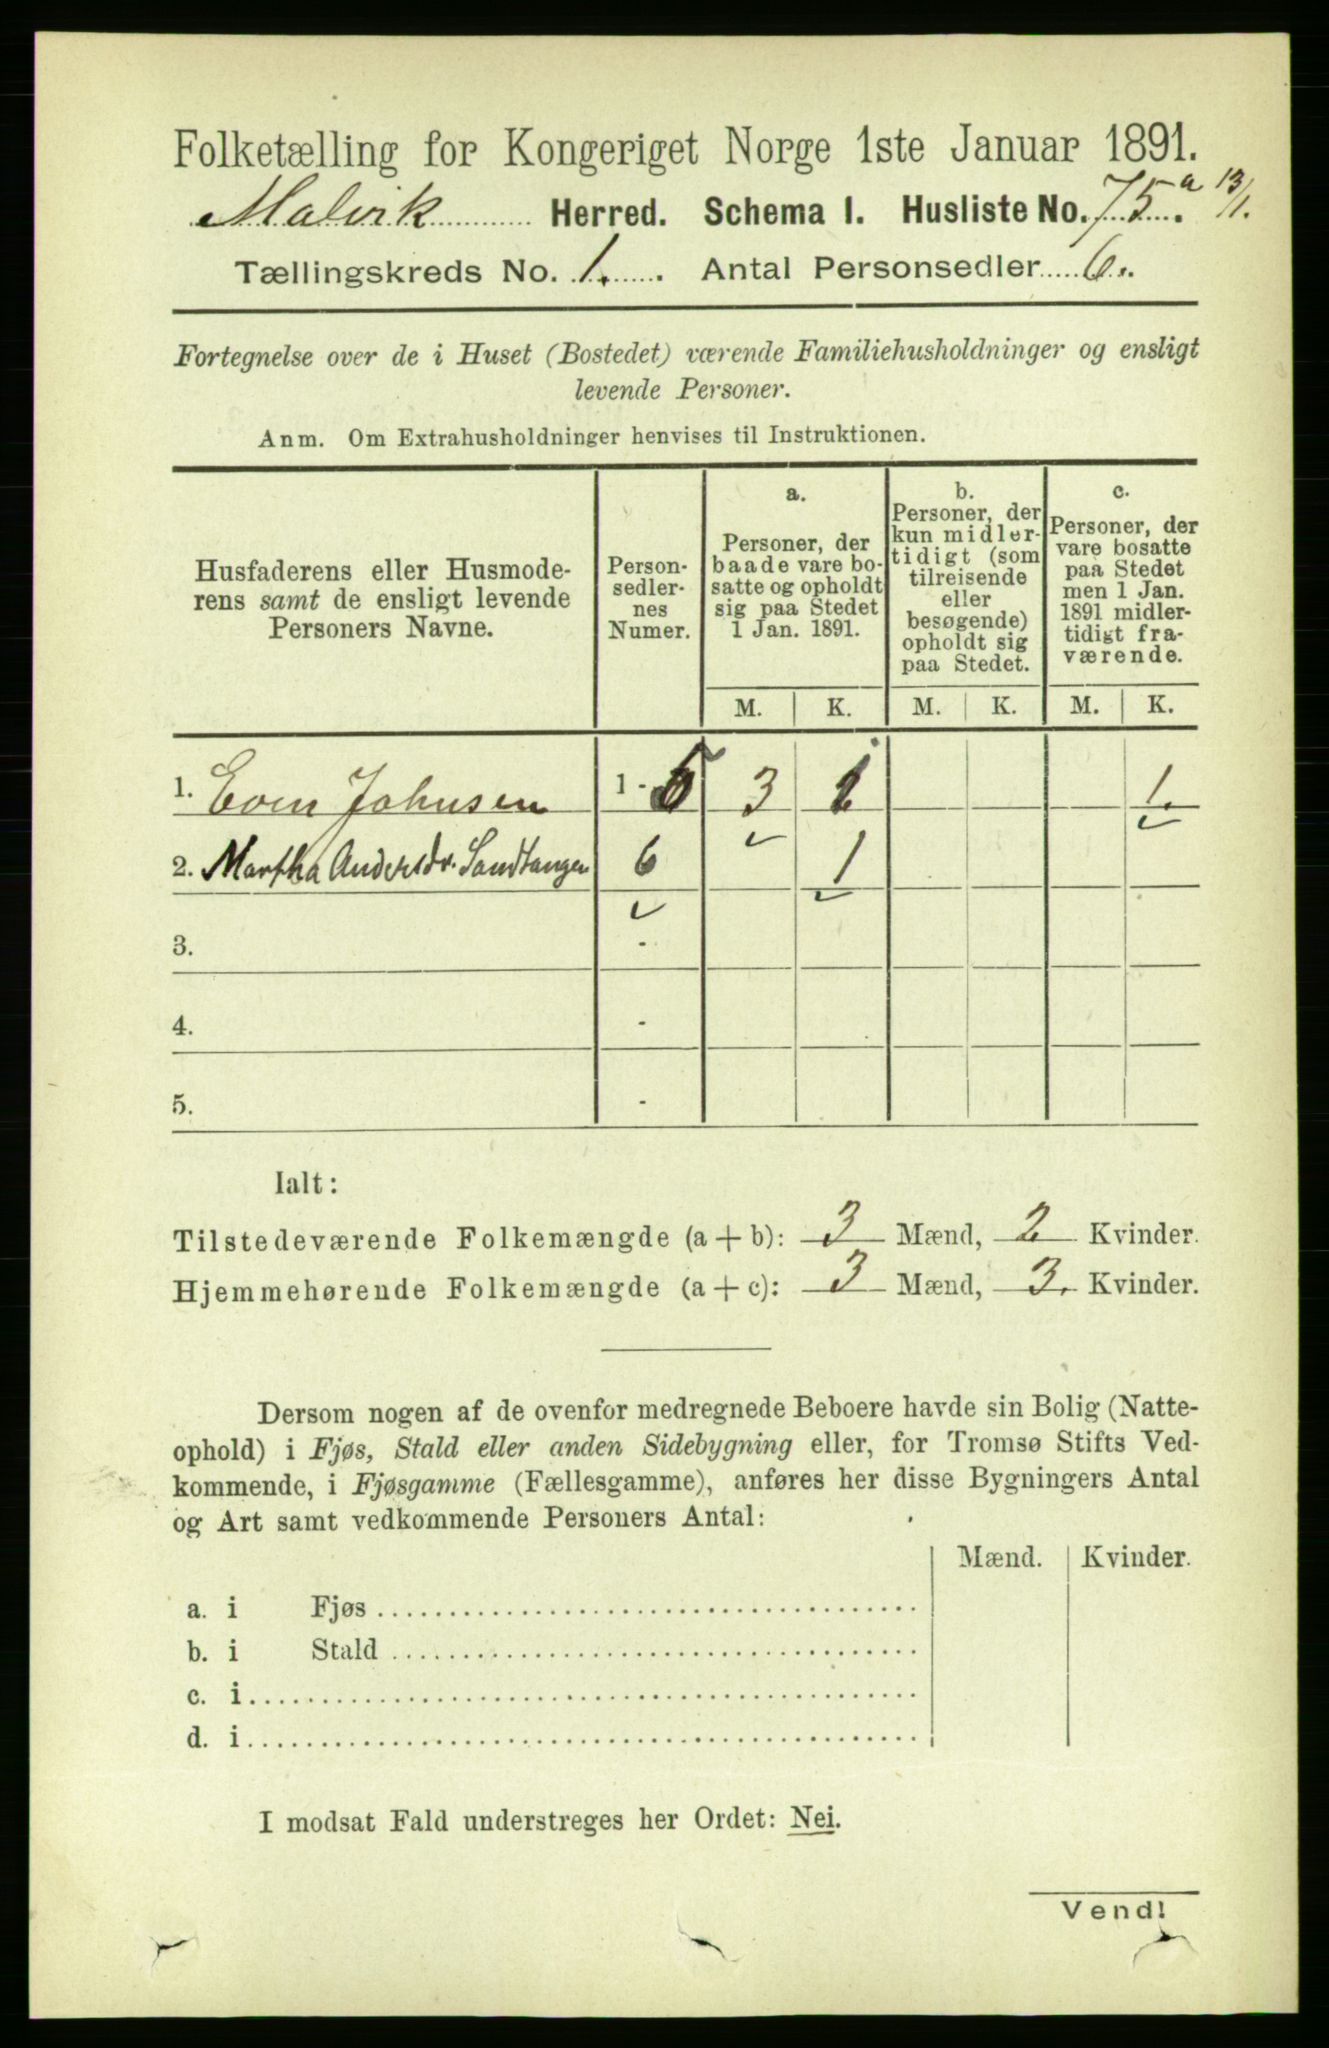 Folketælling for Kongeriget Norge 1ste Januar 1891.
Malvik Herred. Schema I. Husliste No. 75.a 13/1.
Tællingskreds No. 1. Antal Personsedler 6.
Fortegnelse over de i Huset (Bostedet) værende Familiehusholdninger og ensligt
levende Personer.
Anm. Om Extrahusholdninger henvises til Instruktionen.
Husfaderens eller Husmode-
rens samt de ensligt levende
Personers Navne.
Person-
sedler-
nes
Numer.
a.
Personer, der
baade vare bo-
satte og opholdt
sig paa Stedet
1 Jan. 1891.
b.
Personer, der
kun midler-
tidigt (som
tilreisende
eller
besøgende)
opholdt sig
paa Stedet.
c.
Personer, der
vare bosatte
paa Stedet
men 1 Jan.
1891 midler-
tidigt fra-
værende.
M. K. M. K. M. K.
1. Even Johnsen 1 - 5 3 1 1.
2. Martha Andersdr. Sandtangen 6 1
3. -
4. -
5. -
Ialt:
Tilstedeværende Folkemængde (a + b): 3 Mænd, 2 Kvinder.
Hjemmehørende Folkemængde (a + c): 3 Mænd, 3. Kvinder.
Dersom nogen af de ovenfor medregnede Beboere havde sin Bolig (Natte-
ophold) i Fjøs, Stald eller anden Sidebygning eller, for Tromsø Stifts Ved-
kommende, i Fjøsgamme (Fællesgamme), anføres her disse Bygningers Antal
og Art samt vedkommende Personers Antal:
Mænd. Kvinder.
a. i Fjøs
b. i Stald
c. i
d. i
I modsat Fald understreges her Ordet: Nei.
Vend!